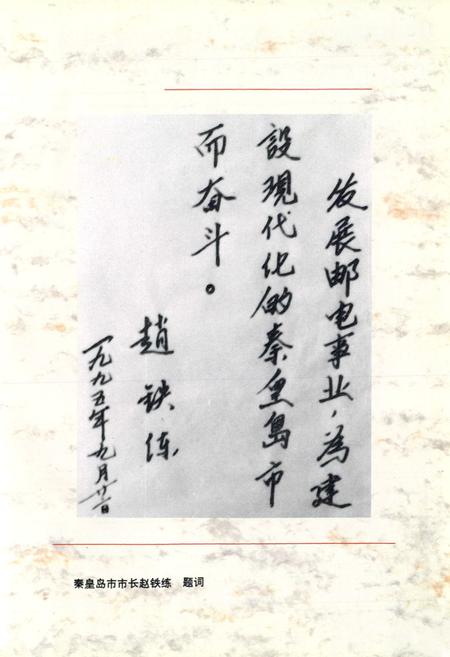 发展邮电事业，為建
設現代化的秦皇岛市
而奋斗。
趙铁练
一九九五年九月廿一日
秦皇岛市市长赵铁练　题词